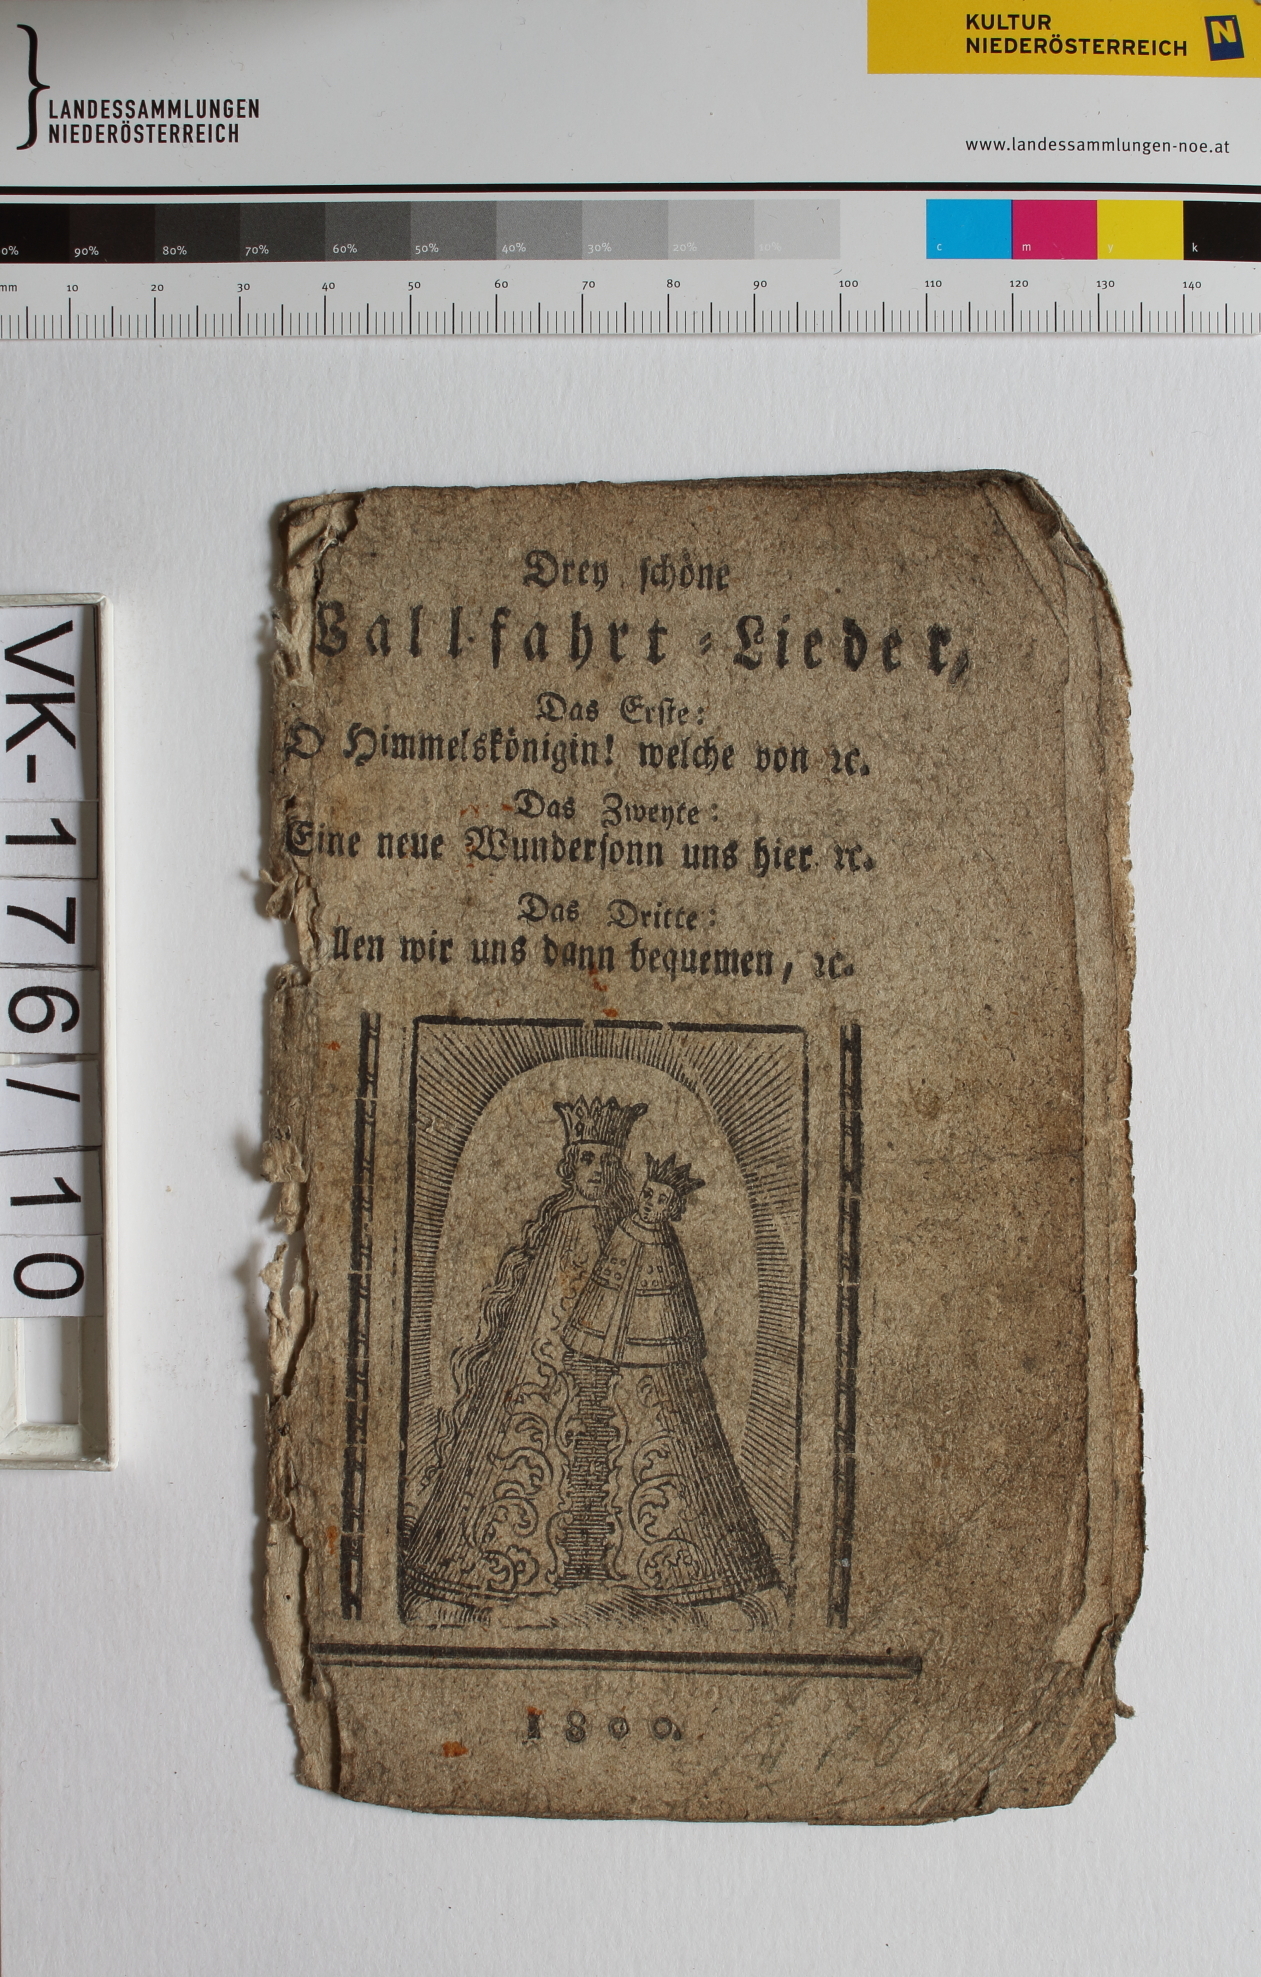 KULTUR
NIEDERÖSTERREICH
N
LANDESSAMMLUNGEN
NIEDERÖSTERREICH
www.landessammlungen-noe.at
0% 90% 80% 70% 60% 50% 40% 30% 20% 10% c m y k
mm 10 20 30 40 50 60 70 80 90 100 110 120 130 140
VK-176/110
Drey schöne
Wallfahrt-Lieder,
Das Erste:
O Himmelskönigin! welche von ꝛc.
Das Zweyte:
Eine neue Wundersonn uns hier ꝛc.
Das Dritte:
llen wir uns dann bequemen, ꝛc.
1800.